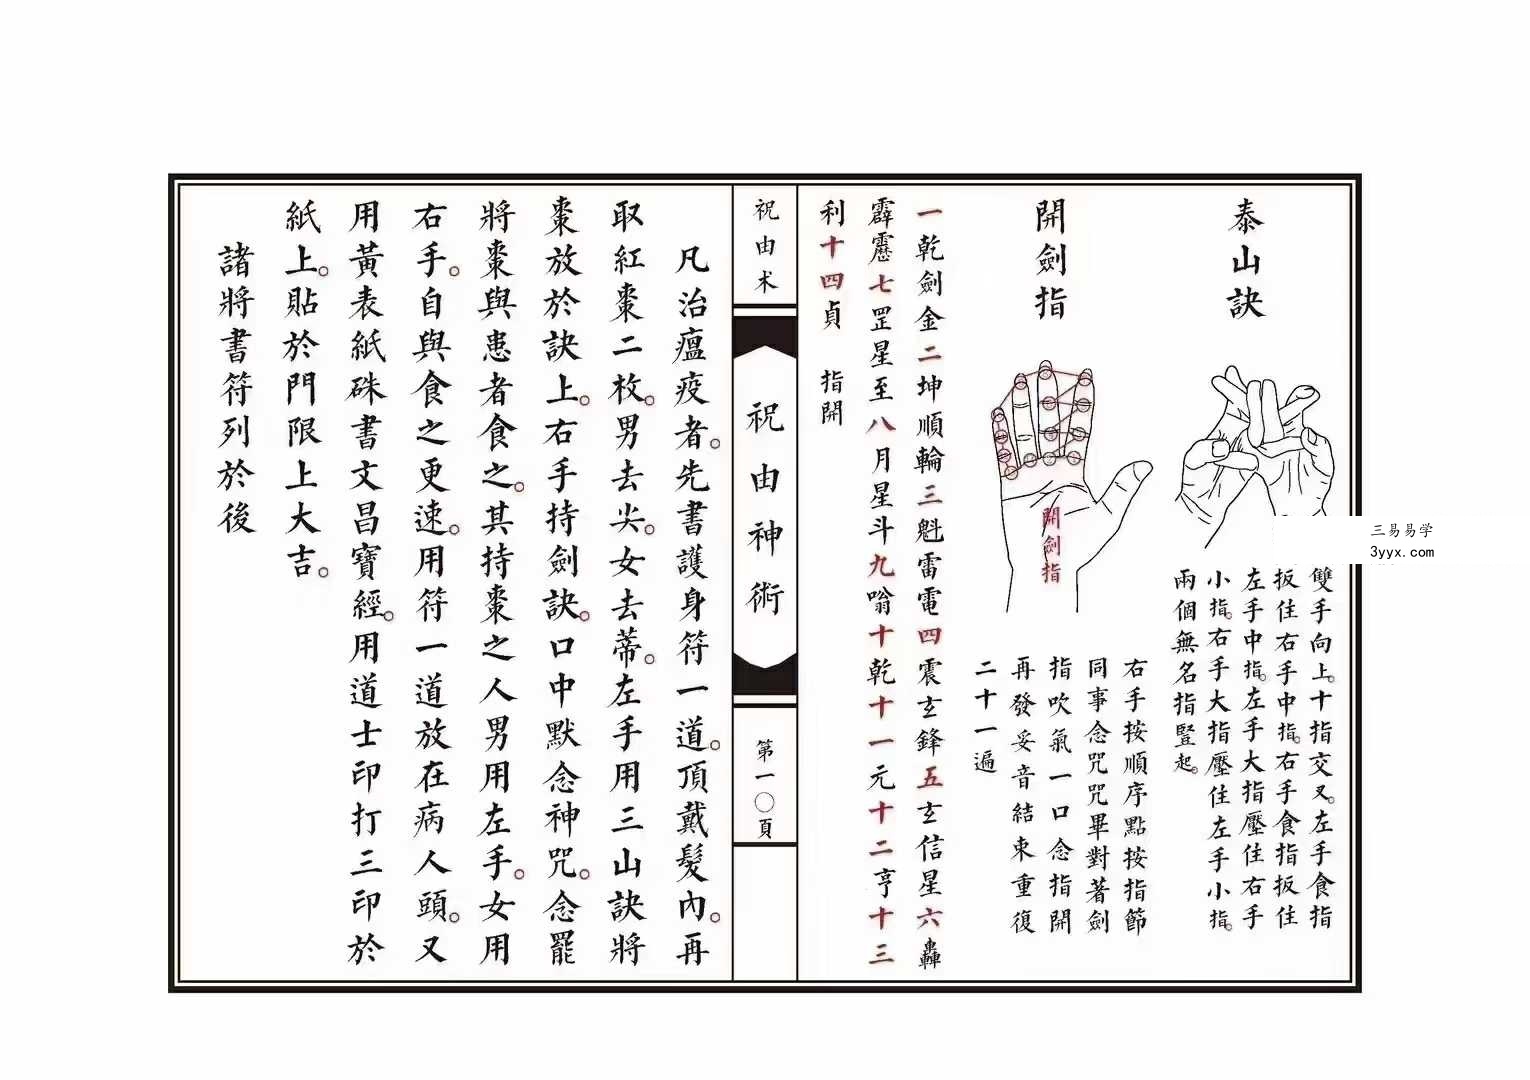 泰山訣
雙手向上。十指交叉。左手食指
扳住右手中指。右手食指扳住
左手中指。左手大指壓住右手
小指。右手大指壓住左手小指。
兩個無名指豎起。
開劍指
開劍指
右手按順序點按指節
同事念咒咒畢對著劍
指吹氣一口念指開
再發妥音結束重復
二十一遍
一乾劍金二坤順輪三魁雷電四震玄鋒五玄信星六轟
霹靂七罡星至八月星斗九嗡十乾十一元十二亨十三
利十四貞 指開
祝由术
祝由神術
第一〇頁
凡治瘟疫者。先書護身符一道。頂戴髮內。再
取紅棗二枚。男去尖。女去蒂。左手用三山訣將
棗放於訣上。右手持劍訣。口中默念神咒。念罷
將棗與患者食之。其持棗之人男用左手。女用
右手。自與食之更速。用符一道放在病人頭。又
用黃表紙硃書文昌寶經。用道士印打三印於
紙上。貼於門限上大吉。
諸將書符列於後
三易易学
3yyx.com